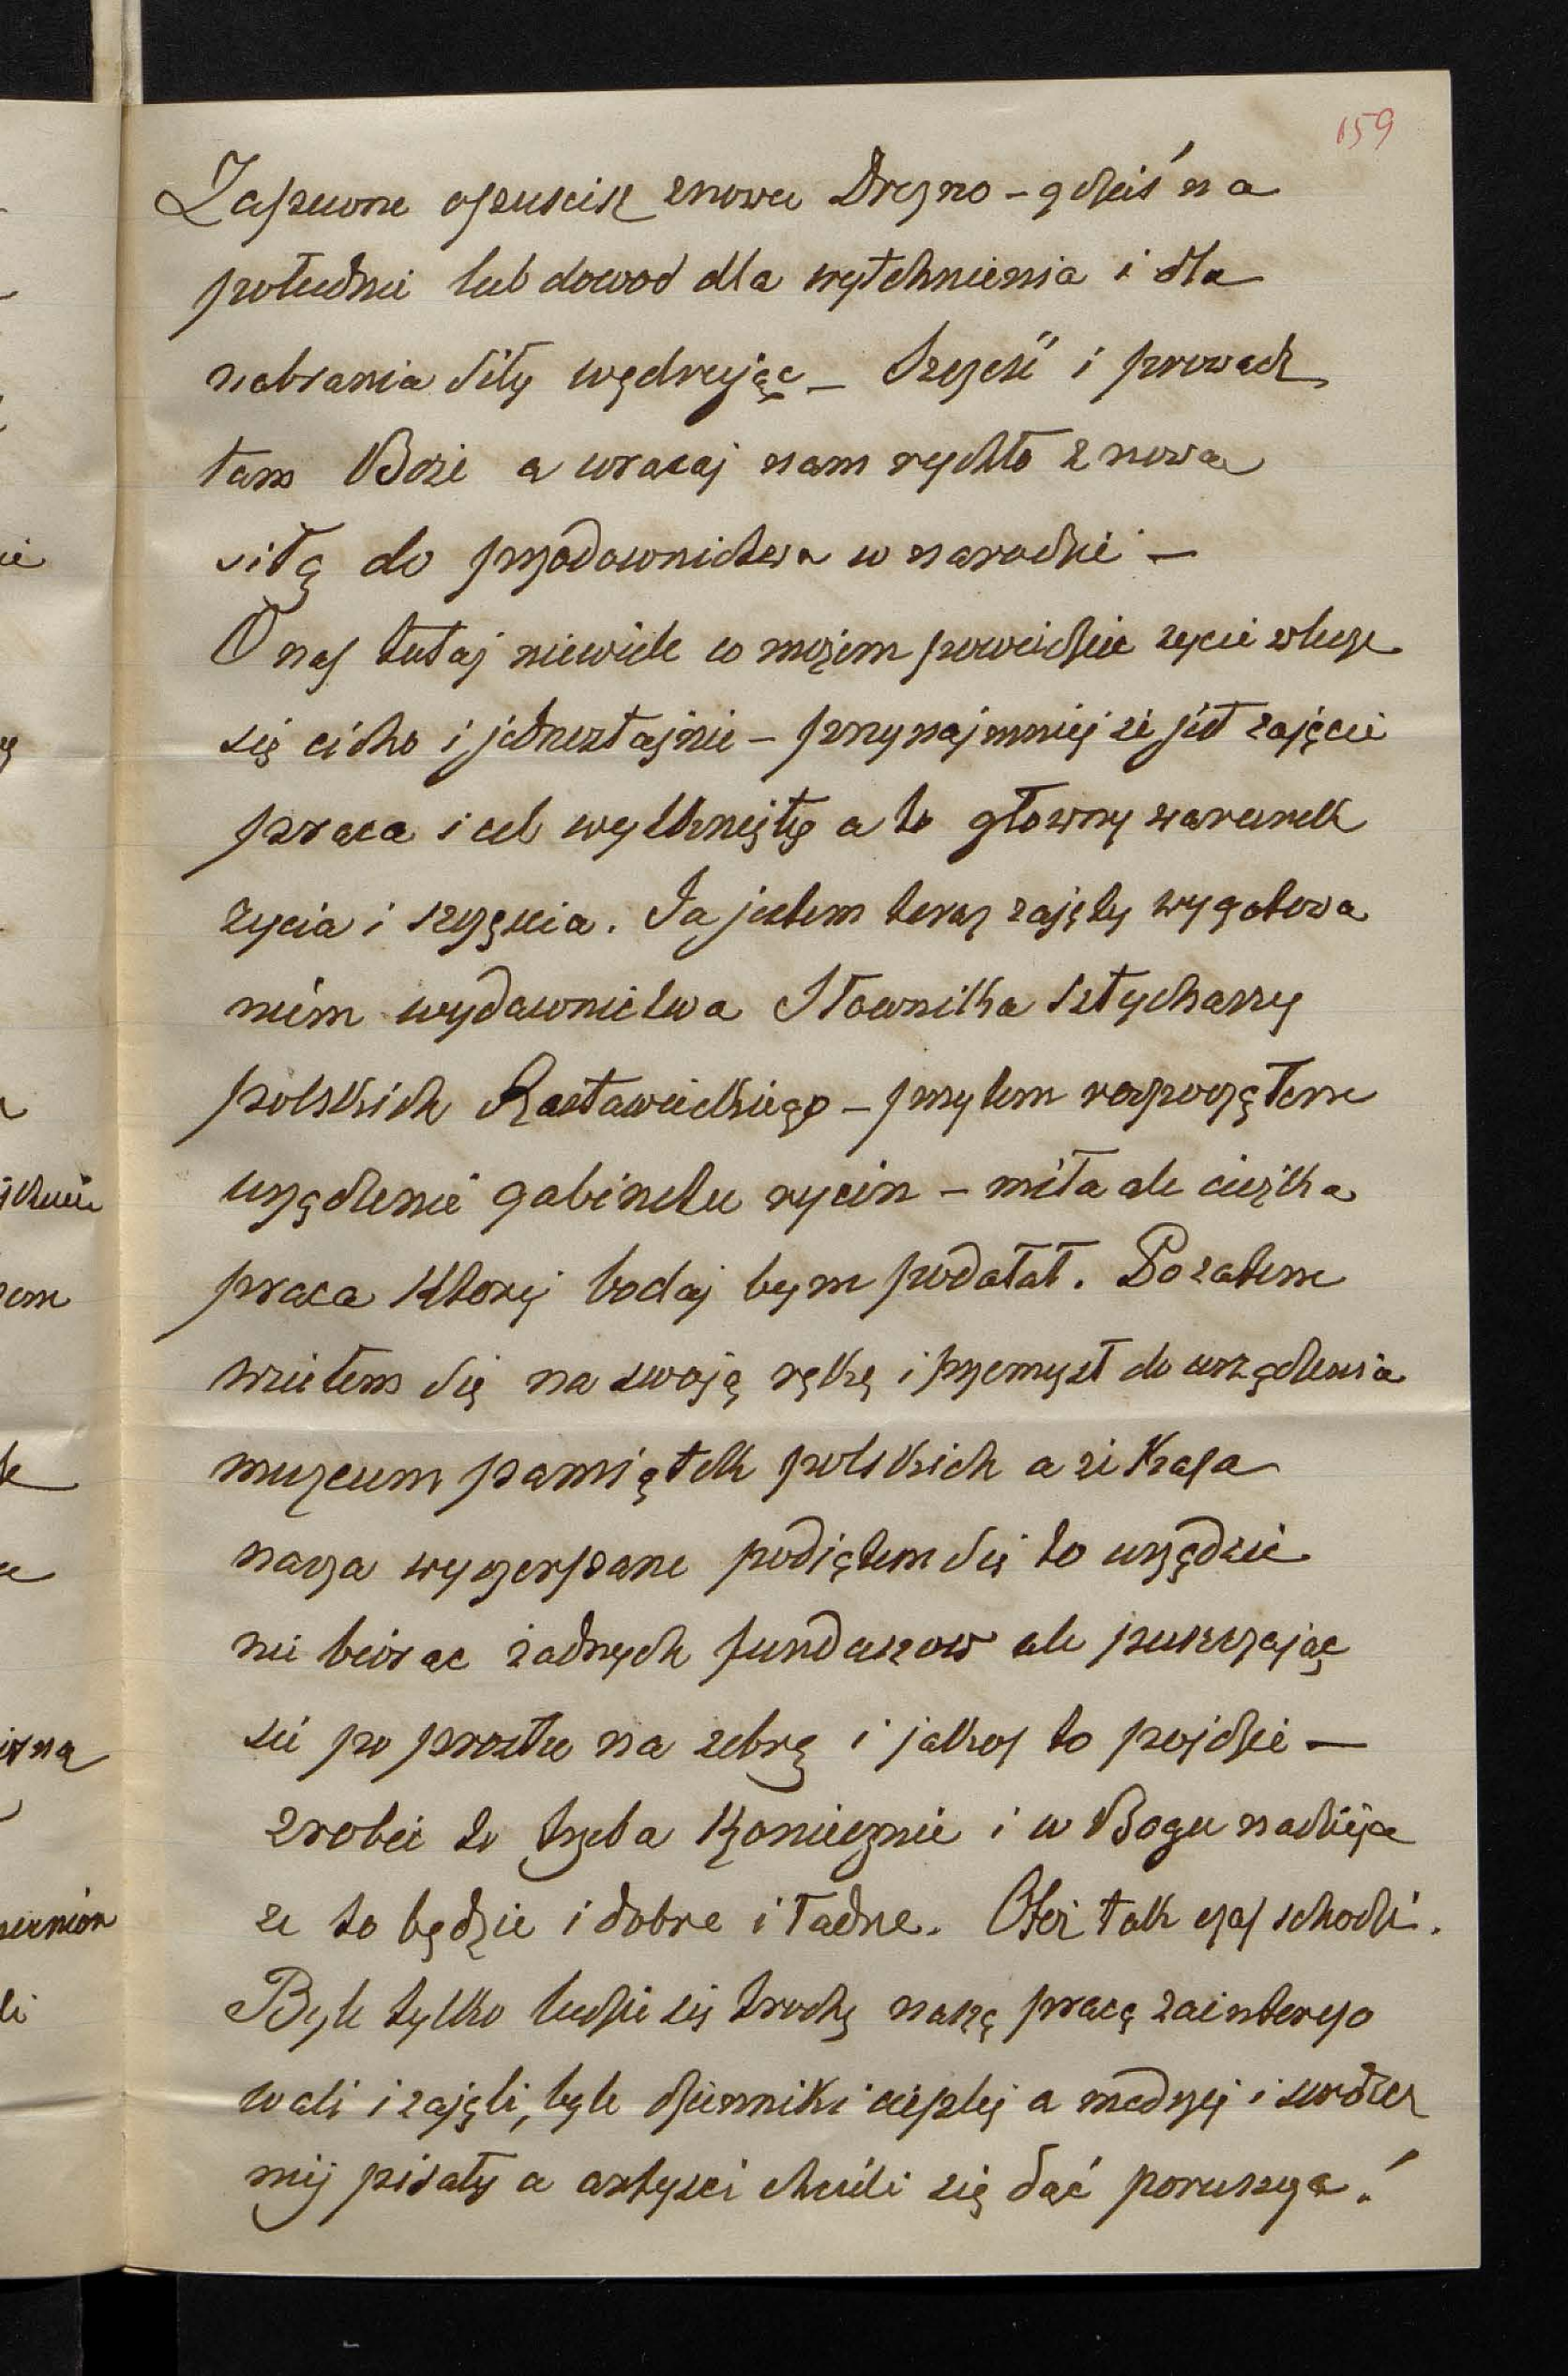 159
Zapewne opuscisz znowu Drezno – gdzieś na
południe lub do wod dla wytchnienia i dla
nabrania siły wędrując – Szczęść i prowadz
tam Boże a wracaj nam rychło z nowa
siłą do przodownictwa w narodzie –
O nas tutaj niewiele co możem powiedzieć zycie wlecze
się cicho i jednostajnie – przynajmniej że jest zajęcie
praca i cel wytknięty a to głowny warunek
zycia i szczęscia. Ja jestem teraz zajęty wygotowa
niem wydawnictwa Słownika sztycharzy
polskich Rastawieckiego – przytem rozpocząłem
urządzenie gabinetu rycin – miła ale ciężka
praca ktorej bodaj bym podołał. Pozatem
wziełem się na swoją rękę i przemysł do urządzenia
muzeum pamiątek polskich a że kasa
nasza wyczerpane podiąłem się to urządzić
nie biorąc żadnych funduszow ale puszczając
się po prostu na zebrę i jakos to pojdzie –
zrobić to trzeba koniecznie i w Bogu nadzieja
ze to będzie i dobre i ładne. Otoż tak czas schodzi.
Byle tylko ludzie się trochę naszą pracą zaintereso
wali i zajęli, byle dzienniki cieplej a mądrzej i serdecz
niej pisały a artysci chcieli się dać poruszyć!
ie
na
li